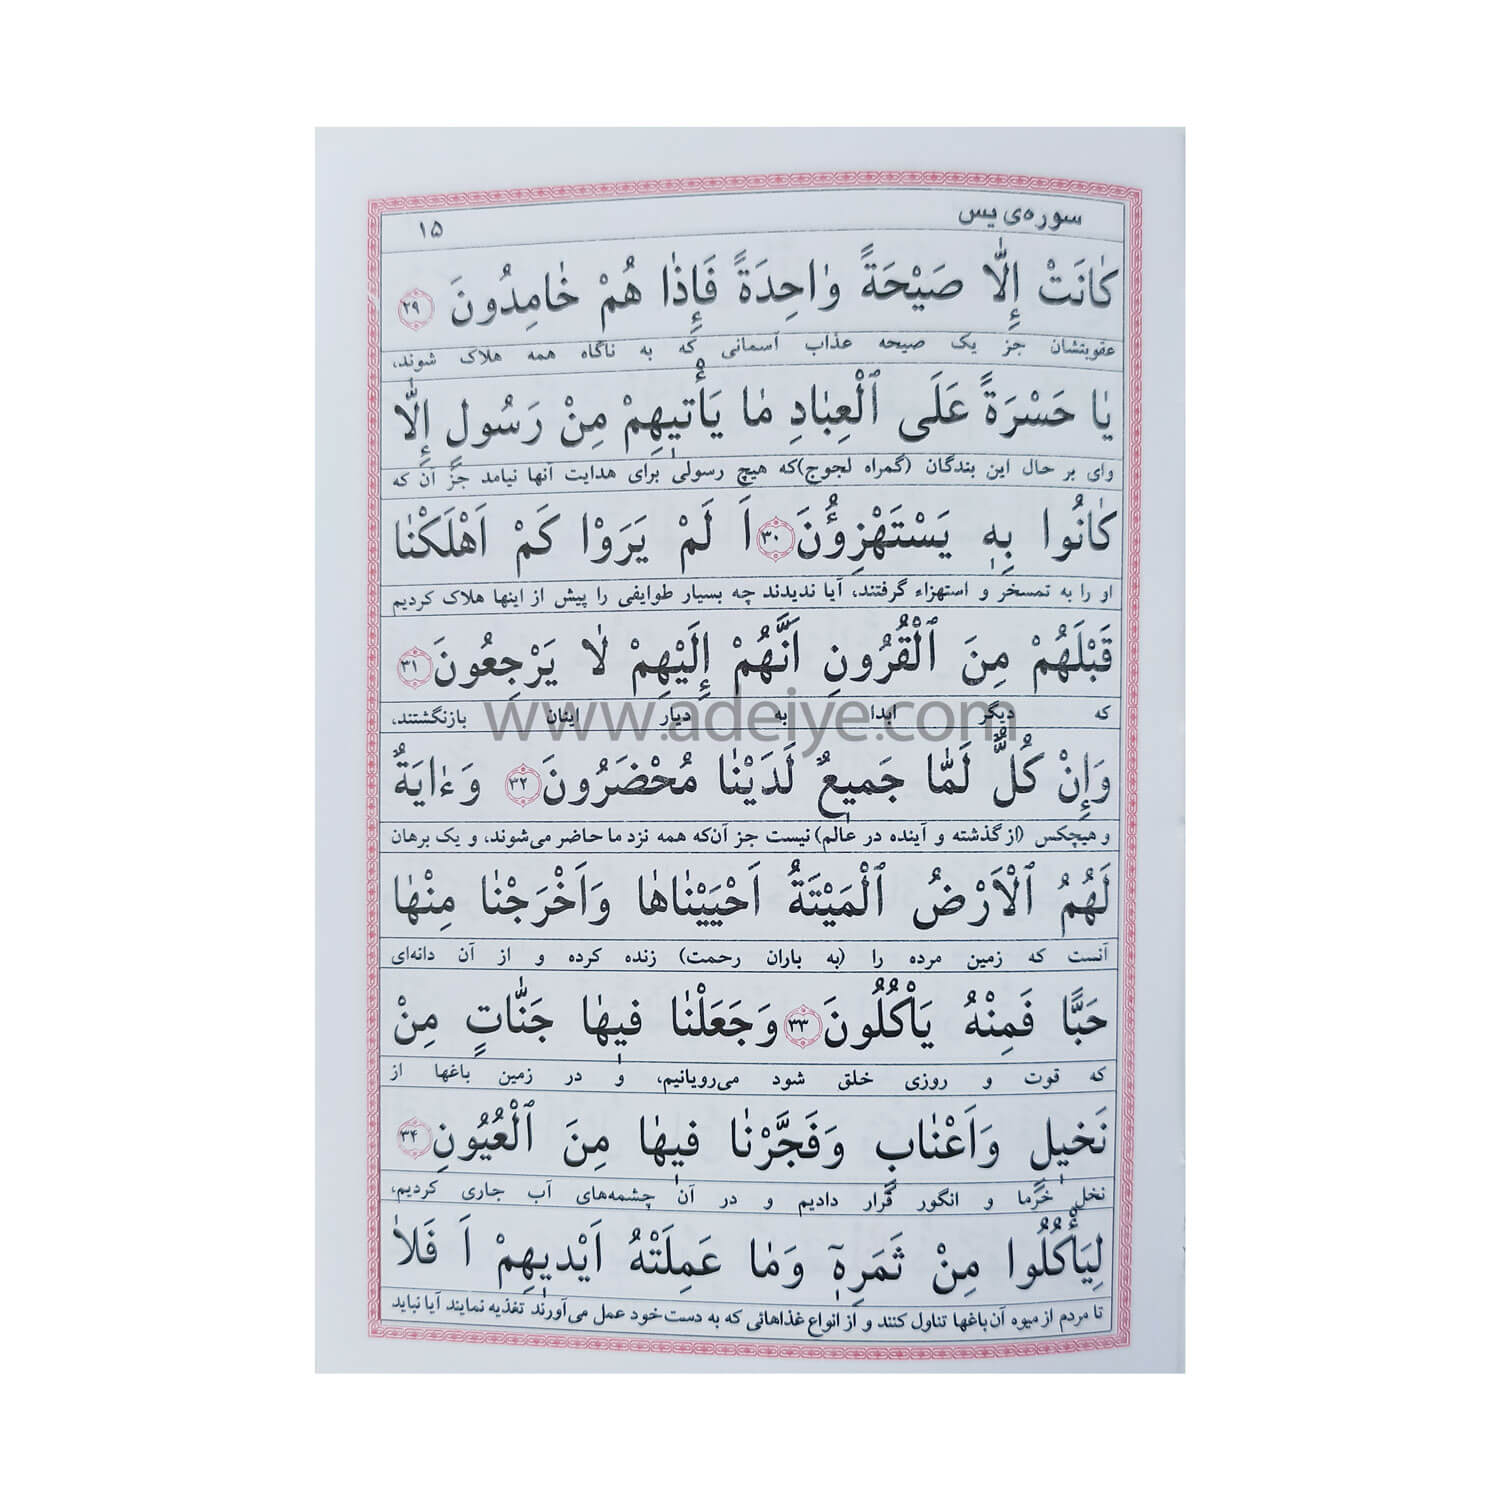 سوره‌ی یس ۱۵
کٰانَتْ إِلّٰا صَيْحَةً وٰاحِدَةً فَإِذٰا هُمْ خٰامِدُونَ ۲۹
عقوبتشان جز یک صیحه عذاب آسمانی که به ناگاه همه هلاک شوند،
يٰا حَسْرَةً عَلَى ٱلْعِبٰادِ مٰا يَأْتيهِمْ مِنْ رَسُولٍ إِلّٰا
وای بر حال این بندگان (گمراه لجوج)که هیچ رسولی برای هدایت آنها نیامد جز آن که
کٰانُوا بِهٖ يَسْتَهْزِؤُنَ ۳۰ اَ لَمْ يَرَوْا کَمْ اَهْلَکْنٰا
او را به تمسخر و استهزاء گرفتند، آیا ندیدند چه بسیار طوایفی را پیش از اینها هلاک کردیم
قَبْلَهُمْ مِنَ ٱلْقُرُونِ اَنَّهُمْ إِلَيْهِمْ لٰا يَرْجِعُونَ ۳۱
که دیگر ابدا به دیار اینان بازنگشتند،
www.adeiye.com
وَإِنْ کُلٌّ لَمّٰا جَميعٌ لَدَيْنٰا مُحْضَرُونَ ۳۲ وَءٰايَةٌ
و هیچکس (از گذشته و آینده در عالم) نیست جز آن‌که همه نزد ما حاضر می‌شوند، و یک برهان
لَهُمُ ٱلْاَرْضُ ٱلْمَيْتَةُ اَحْيَيْنٰاهٰا وَاَخْرَجْنٰا مِنْهٰا
آنست که زمین مرده را (به باران رحمت) زنده کرده و از آن دانه‌ای
حَبًّا فَمِنْهُ يَاْکُلُونَ ۳۳ وَجَعَلْنٰا فيهٰا جَنّٰاتٍ مِنْ
که قوت و روزی خلق شود می‌رویانیم، و در زمین باغها از
نَخيلٍ وَاَعْنٰابٍ وَفَجَّرْنٰا فيهٰا مِنَ ٱلْعُيُونِ ۳۴
نخل خرما و انگور قرار دادیم و در آن چشمه‌های آب جاری کردیم،
لِيَأْکُلُوا مِنْ ثَمَرِهٖ وَمٰا عَمِلَتْهُ اَيْديهِمْ اَ فَلٰا
تا مردم از میوه آن‌باغها تناول کنند و از انواع غذاهائی که به دست خود عمل می‌آورند تغذیه نمایند آیا نباید